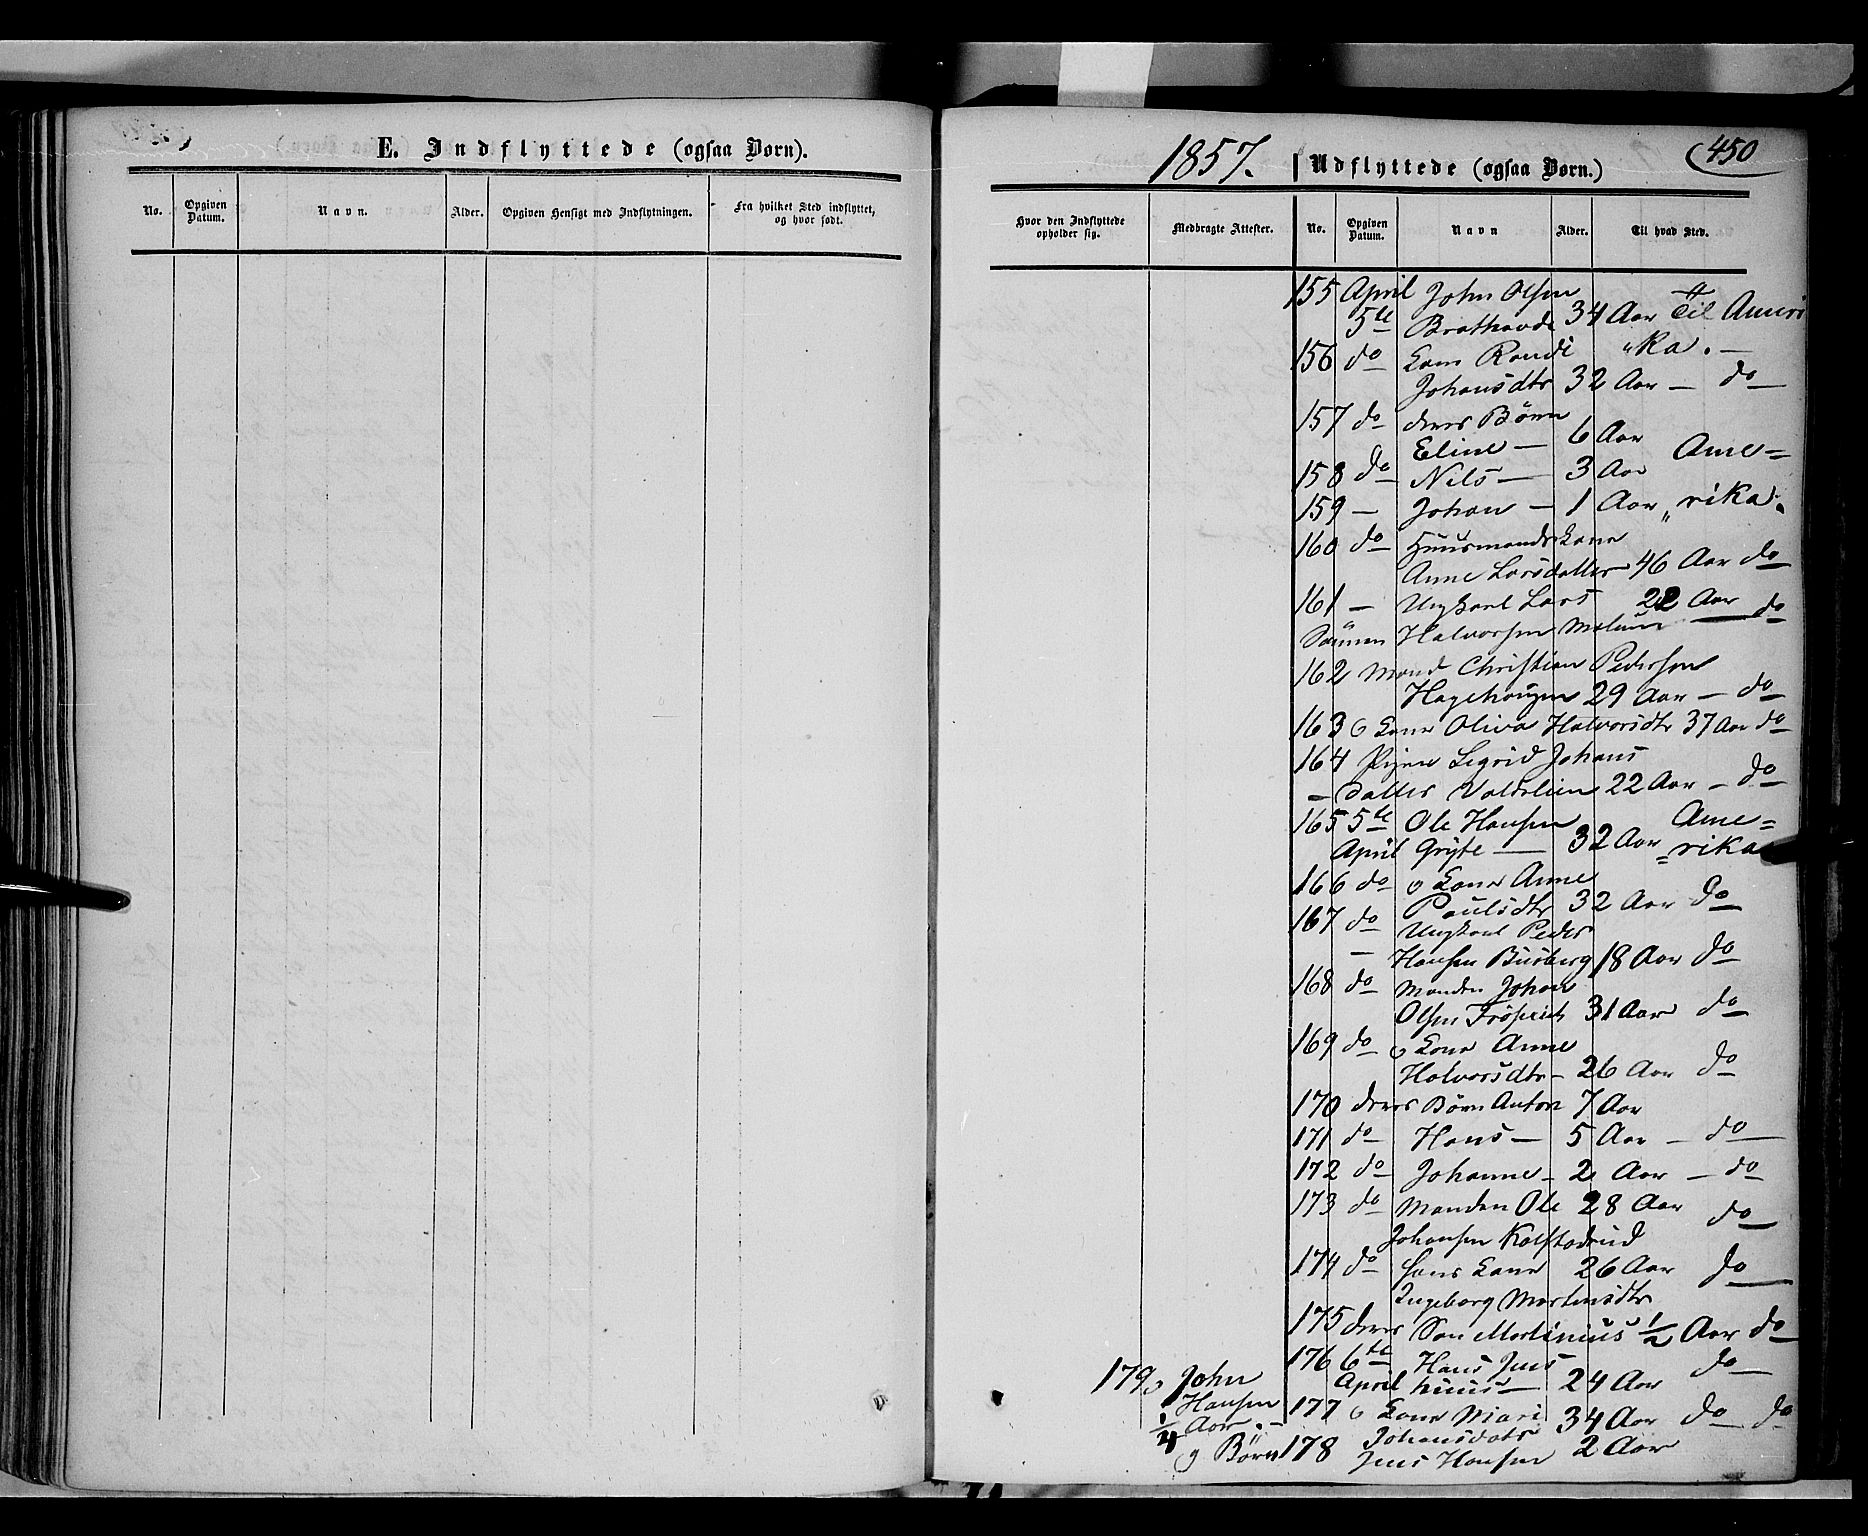 E. Indflyttede (ogsaa Børn).
No.
Opgiven Datum.
Navn.
Alder.
Opgiven Hensigt med Indflytningen.
Fra hvilket Sted indflyttet, og hvor født.
1857.
Udflyttede (ogsaa Børn.)
450
Hvor den Indflyttede opholder sig.
Medbragte Attester.
No.
Opgiven Datum.
Navn
Alder.
Til hvad Sted.
155 April John Olsen
5te 34 Aar Til Ameri
156 do Kone Randi "ka. —
Johansdtr 32 Aar — do
157 do deres Børn
Eline — 6 Aar
158 do Nils — 3 Aar Ame=
159 — Johan — 1 Aar "rika.
160 do Huusmandskone
Anne Larsdatter 46 Aar do
161 — Ungkarl Lars 22 Aar do
Sønnen Halvorsen
162 Mand Christian Pedersen
Hagehaugen 29 Aar — do
163 o Kone Oliva Halvorsdtr 37 Aar do
164 Pigen Sigrid Johans
— datter 22 Aar — do
165 5te Ole Hansen Ame=
April Gryte — 32 Aar =rika
166 do o Kone Anne
Paulsdtr 32 Aar do
167 do Ungkarl Peder
— Hansen Busberg 18 Aar do
168 do Manden Johan
Olsen 31 Aar do
169 do o Kone Anne
Halvorsdtr — 26 Aar do
170 deres Børn Anton 7 Aar
171 do Hans — 5 Aar — do
172 do Johanne — 2 Aar — do
173 do Manden Ole 28 Aar do
Johansen Kolstadrud
174 do hans Kone 26 Aar do
Ingeborg Martinsdtr
175 deres Søn Martinius 1/2 Aar do
176 6te Hans Jens do
April huus — 24 Aar
177 o Kone Mari 34 Aar do do
Johansdatr
178 Jens Hansen 2 Aar
179 John
Hansen
1/4 Aar. —
g Børn